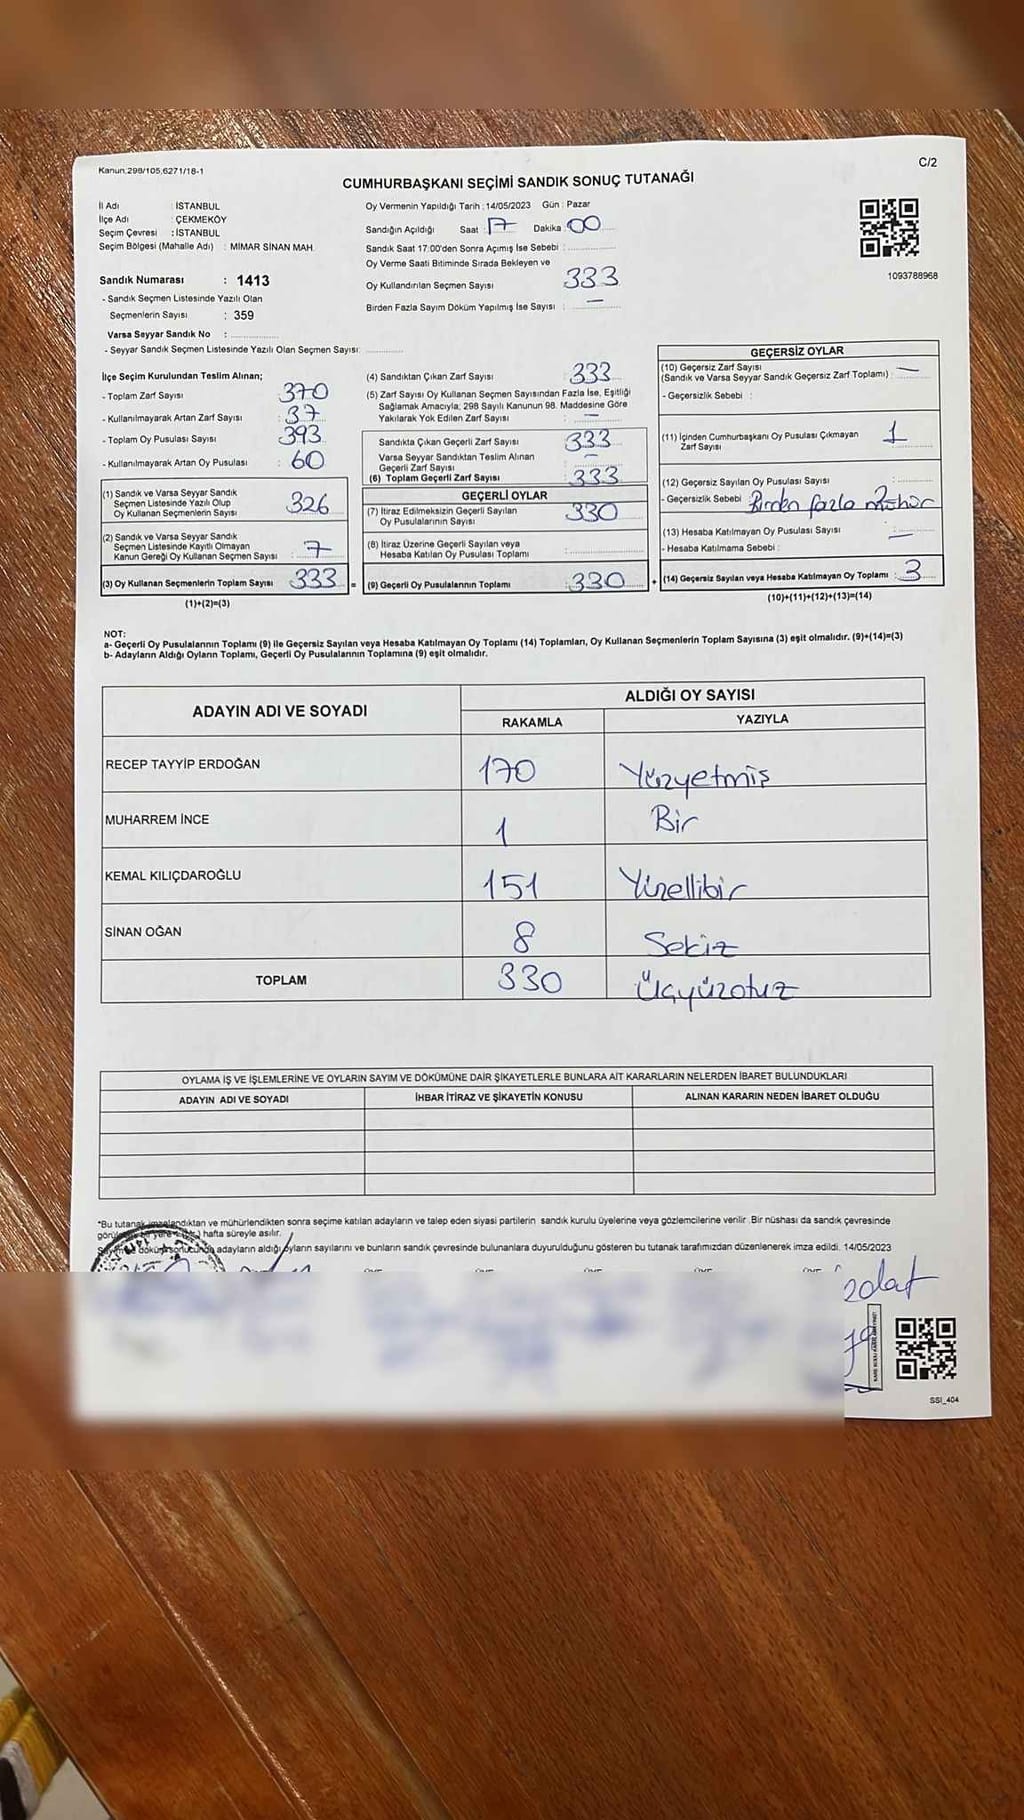 Kanun:298/105,6271/18-1
C/2
CUMHURBAŞKANI SEÇİMİ SANDIK SONUÇ TUTANAĞI
İl Adı : İSTANBUL
İlçe Adı : ÇEKMEKÖY
Seçim Çevresi : İSTANBUL
Seçim Bölgesi (Mahalle Adı) : MİMAR SİNAN MAH.
Sandık Numarası : 1413
- Sandık Seçmen Listesinde Yazılı Olan
Seçmenlerin Sayısı : 359
Varsa Seyyar Sandık No :
- Seyyar Sandık Seçmen Listesinde Yazılı Olan Seçmen Sayısı:
Oy Vermenin Yapıldığı Tarih : 14/05/2023 Gün : Pazar
Sandığın Açıldığı Saat : 17 Dakika : 00
Sandık Saat 17:00'den Sonra Açımış İse Sebebi :
Oy Verme Saati Bitiminde Sırada Bekleyen ve
Oy Kullandırılan Seçmen Sayısı 333
Birden Fazla Sayım Döküm Yapılmış İse Sayısı : —
1093788968
İlçe Seçim Kurulundan Teslim Alınan;
- Toplam Zarf Sayısı : 370
- Kullanılmayarak Artan Zarf Sayısı : 37
- Toplam Oy Pusulası Sayısı : 393
- Kullanılmayarak Artan Oy Pusulası : 60
(1) Sandık ve Varsa Seyyar Sandık
Seçmen Listesinde Yazılı Olup
Oy Kullanan Seçmenlerin Sayısı : 326
(2) Sandık ve Varsa Seyyar Sandık
Seçmen Listesinde Kayıtlı Olmayan
Kanun Gereği Oy Kullanan Seçmen Sayısı : 7
(3) Oy Kullanan Seçmenlerin Toplam Sayısı : 333 =
(1)+(2)=(3)
(4) Sandıktan Çıkan Zarf Sayısı : 333
(5) Zarf Sayısı Oy Kullanan Seçmen Sayısından Fazla İse, Eşitliği
Sağlamak Amacıyla; 298 Sayılı Kanunun 98. Maddesine Göre
Yakılarak Yok Edilen Zarf Sayısı : —
Sandıkta Çıkan Geçerli Zarf Sayısı : 333
Varsa Seyyar Sandıktan Teslim Alınan
Geçerli Zarf Sayısı : —
(6) Toplam Geçerli Zarf Sayısı : 333
GEÇERLİ OYLAR
(7) İtiraz Edilmeksizin Geçerli Sayılan
Oy Pusulalarının Sayısı : 330
(8) İtiraz Üzerine Geçerli Sayılan veya
Hesaba Katılan Oy Pusulası Toplamı :
(9) Geçerli Oy Pusulalarının Toplamı : 330 +
GEÇERSİZ OYLAR
(10) Geçersiz Zarf Sayısı
(Sandık ve Varsa Seyyar Sandık Geçersiz Zarf Toplamı) : —
- Geçersizlik Sebebi :
(11) İçinden Cumhurbaşkanı Oy Pusulası Çıkmayan
Zarf Sayısı : 1
(12) Geçersiz Sayılan Oy Pusulası Sayısı :
- Geçersizlik Sebebi : Birden fazla mühür
(13) Hesaba Katılmayan Oy Pusulası Sayısı : —
- Hesaba Katılmama Sebebi :
(14) Geçersiz Sayılan veya Hesaba Katılmayan Oy Toplamı : 3
(10)+(11)+(12)+(13)=(14)
NOT:
a- Geçerli Oy Pusulalarının Toplamı (9) ile Geçersiz Sayılan veya Hesaba Katılmayan Oy Toplamı (14) Toplamları, Oy Kullanan Seçmenlerin Toplam Sayısına (3) eşit olmalıdır. (9)+(14)=(3)
b- Adayların Aldığı Oyların Toplamı, Geçerli Oy Pusulalarının Toplamına (9) eşit olmalıdır.
ADAYIN ADI VE SOYADI
ALDIĞI OY SAYISI
RAKAMLA YAZIYLA
RECEP TAYYİP ERDOĞAN 170 Yüzyetmiş
MUHARREM İNCE 1 Bir
KEMAL KILIÇDAROĞLU 151 Yüzellibir
SİNAN OĞAN 8 Sekiz
TOPLAM 330 Üçyüzotuz
OYLAMA İŞ VE İŞLEMLERİNE VE OYLARIN SAYIM VE DÖKÜMÜNE DAİR ŞİKAYETLERLE BUNLARA AİT KARARLARIN NELERDEN İBARET BULUNDUKLARI
ADAYIN ADI VE SOYADI İHBAR İTİRAZ VE ŞİKAYETİN KONUSU ALINAN KARARIN NEDEN İBARET OLDUĞU
*Bu tutanak imzalandıktan ve mühürlendikten sonra seçime katılan adayların ve talep eden siyasi partilerin sandık kurulu üyelerine veya gözlemcilerine verilir .Bir nüshası da sandık çevresinde
hafta süreyle asılır.
adayların aldığı oyların sayılarını ve bunların sandık çevresinde bulunanlara duyurulduğunu gösteren bu tutanak tarafımızdan düzenlenerek imza edildi. 14/05/2023
SSI_404